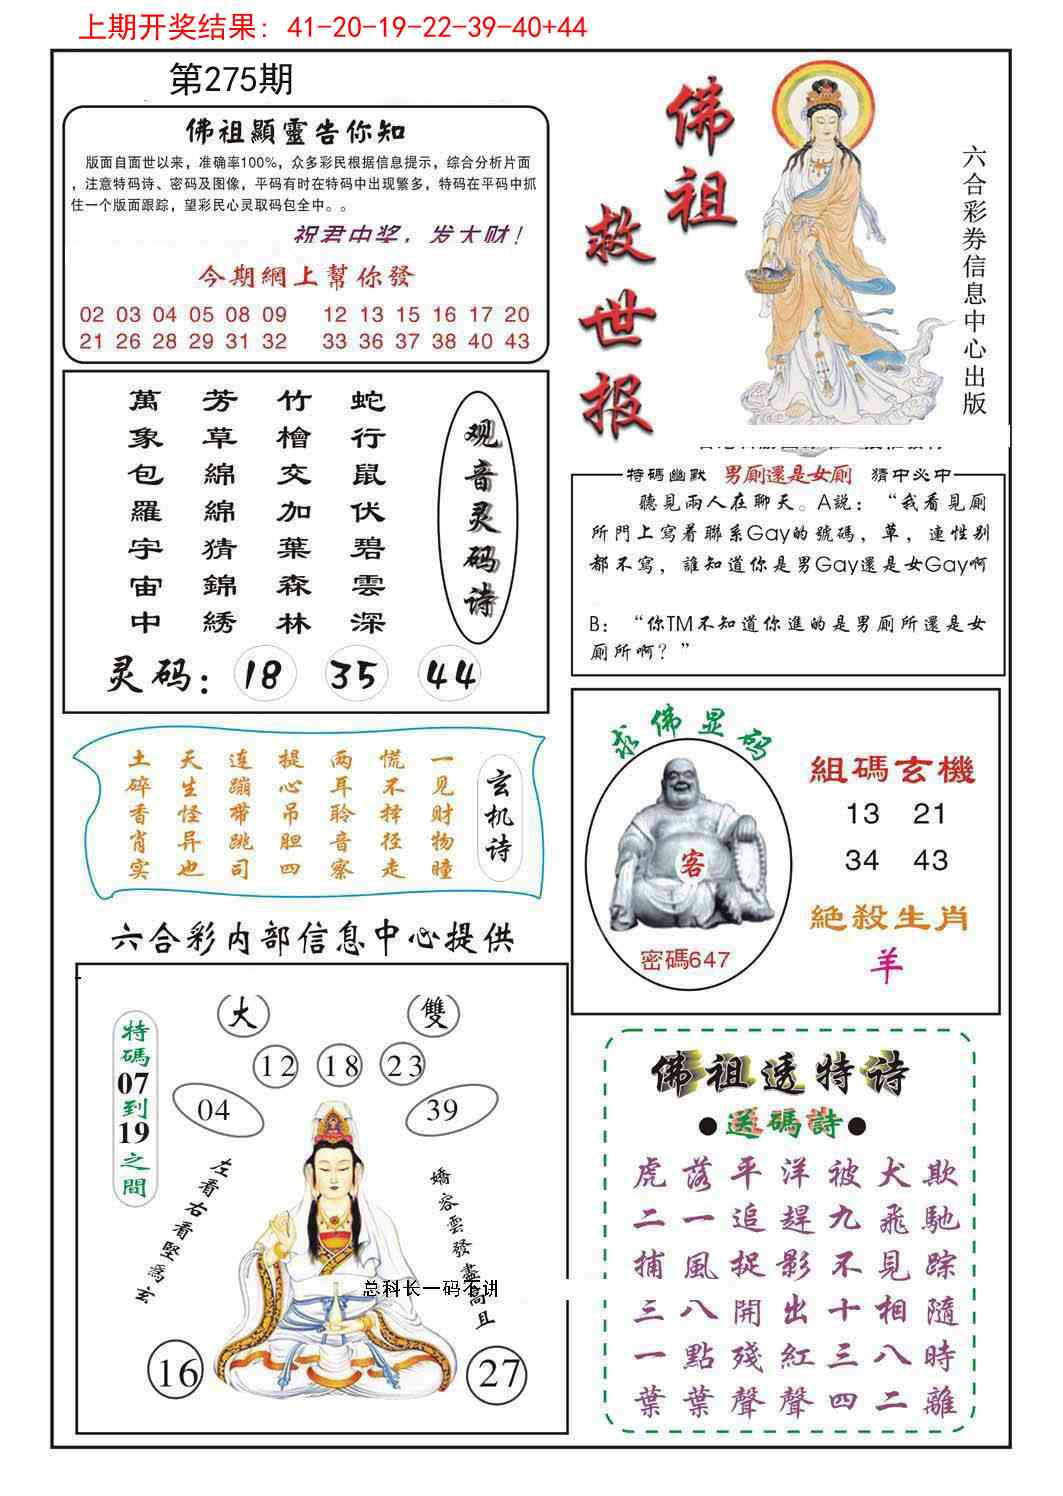 上期开奖结果：41-20-19-22-39-40+44
第275期
佛祖顯靈告你知
版面自面世以来，准确率100%，众多彩民根据信息提示，综合分析片面
，注意特码诗、密码及图像，平码有时在特码中出现繁多，特码在平码中抓
住一个版面跟踪，望彩民心灵取码包全中。。
祝君中奖，发大财！
今期網上幫你發
02 03 04 05 08 09 12 13 15 16 17 20
21 26 28 29 31 32 33 36 37 38 40 43
佛祖
救世报
六合彩券信息中心出版
观音灵码诗
蛇行鼠伏碧雲深
竹檜交加葉森林
芳草綿綿猜錦綉
萬象包羅宇宙中
灵码：18 35 44
特碼幽默 男厠還是女厠 猜中必中
聽見兩人在聊天。A説：“我看見厠
所門上寫着聯系Gay的號碼，草，連性别
都不寫，誰知道你是男Gay還是女Gay啊
B：“你TM不知道你進的是男厠所還是女
厠所啊？”
玄机诗
一见财物瞳
慌不择径走
两耳聆音察
提心吊胆四
连蹦带跳司
天生怪异也
土碎香肖实
求佛显码
客
密碼647
組碼玄機
13 21
34 43
絕殺生肖
羊
六合彩内部信息中心提供
大 雙
12 18 23
04 39
特碼07到19之間
左看右看堅爲玄
嬌容雲發盡高且
总科长一码不讲
16 27
佛祖透特诗
●送碼詩●
虎落平洋被犬欺
二一追趕九飛馳
捕風捉影不見踪
三八開出十相隨
一點殘紅三八時
葉葉聲聲四二離